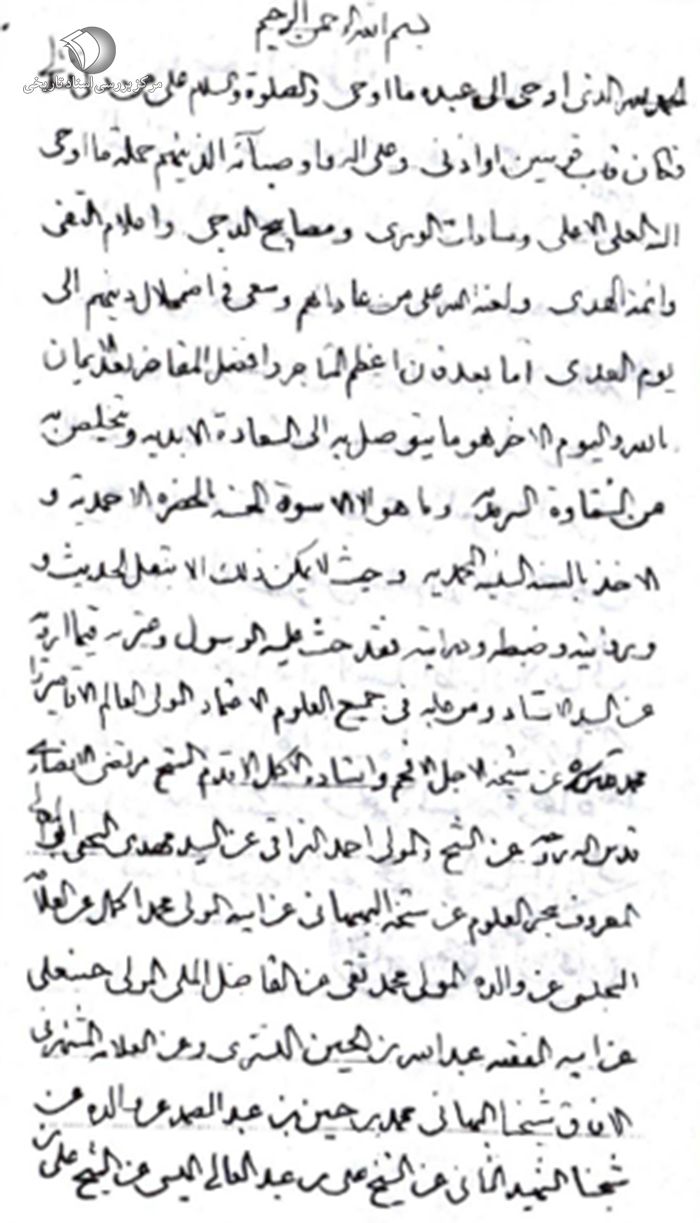 مرکز بررسی اسناد تاریخی
بسم الله الرحمن الرحیم
الحمد لله الذی اوحی الی عبده ما اوحی والصلوة والسلام علی من
فکان قاب قوسین او ادنی وعلی اله واوصیآئه الذینهم حملة ما اوحی
الله العلی الاعلی وسادات الوری ومصابیح الدجی واعلام التقی
وائمة الهدی ولعنة الله علی من عاداهم وسعی فی اضمحلال دینهم الی
یوم اما بعد فان اعظم المآثر وافضل المفاخر بعد الایمان
بالله والیوم الاخر هو ما یتوصل به الی السعادة الابدیه ویتخلص به
من الشقاوة السرمدیه وما هو الا الاسوة الحسنه بالحضره الاحمدیه و
الاخذ بالسنه السنیه المحمدیه وحیث لا یمکن ذلک الا بنقل الحدیث و
وروایته وضبطه ودرایته فقد حث علیه الرسول وعترته فیما ارویه
عن السید الاستاد ومن علیه فی جمیع العلوم الاعتماد المولی العالم الاقا میرزا
محمد عن شیخه الاجل الافخم واستاده الاکمل الاقدم الشیخ مرتضی الانصاری
قدس الله عن الشیخ المولی احمد النراقی عن السید مهدی النجفی
المعروف ببحر العلوم عن شیخه البهبهانی عن ابیه المولی محمد اکمل عن العلامه
المجلسی عن والده المولی محمد تقی عن الفاضل الملی المولی حسنعلی
عن ابیه الفقیه عبدالله بن الحسین التستری وعن العلامه المشتهر فی
الافاق شیخنا البهائی محمد بن حسین بن عبد الصمد عن والده عن
شیخنا الشهید الثانی عن الشیخ علی بن عبد العالی المیسی عن الشیخ علی بن